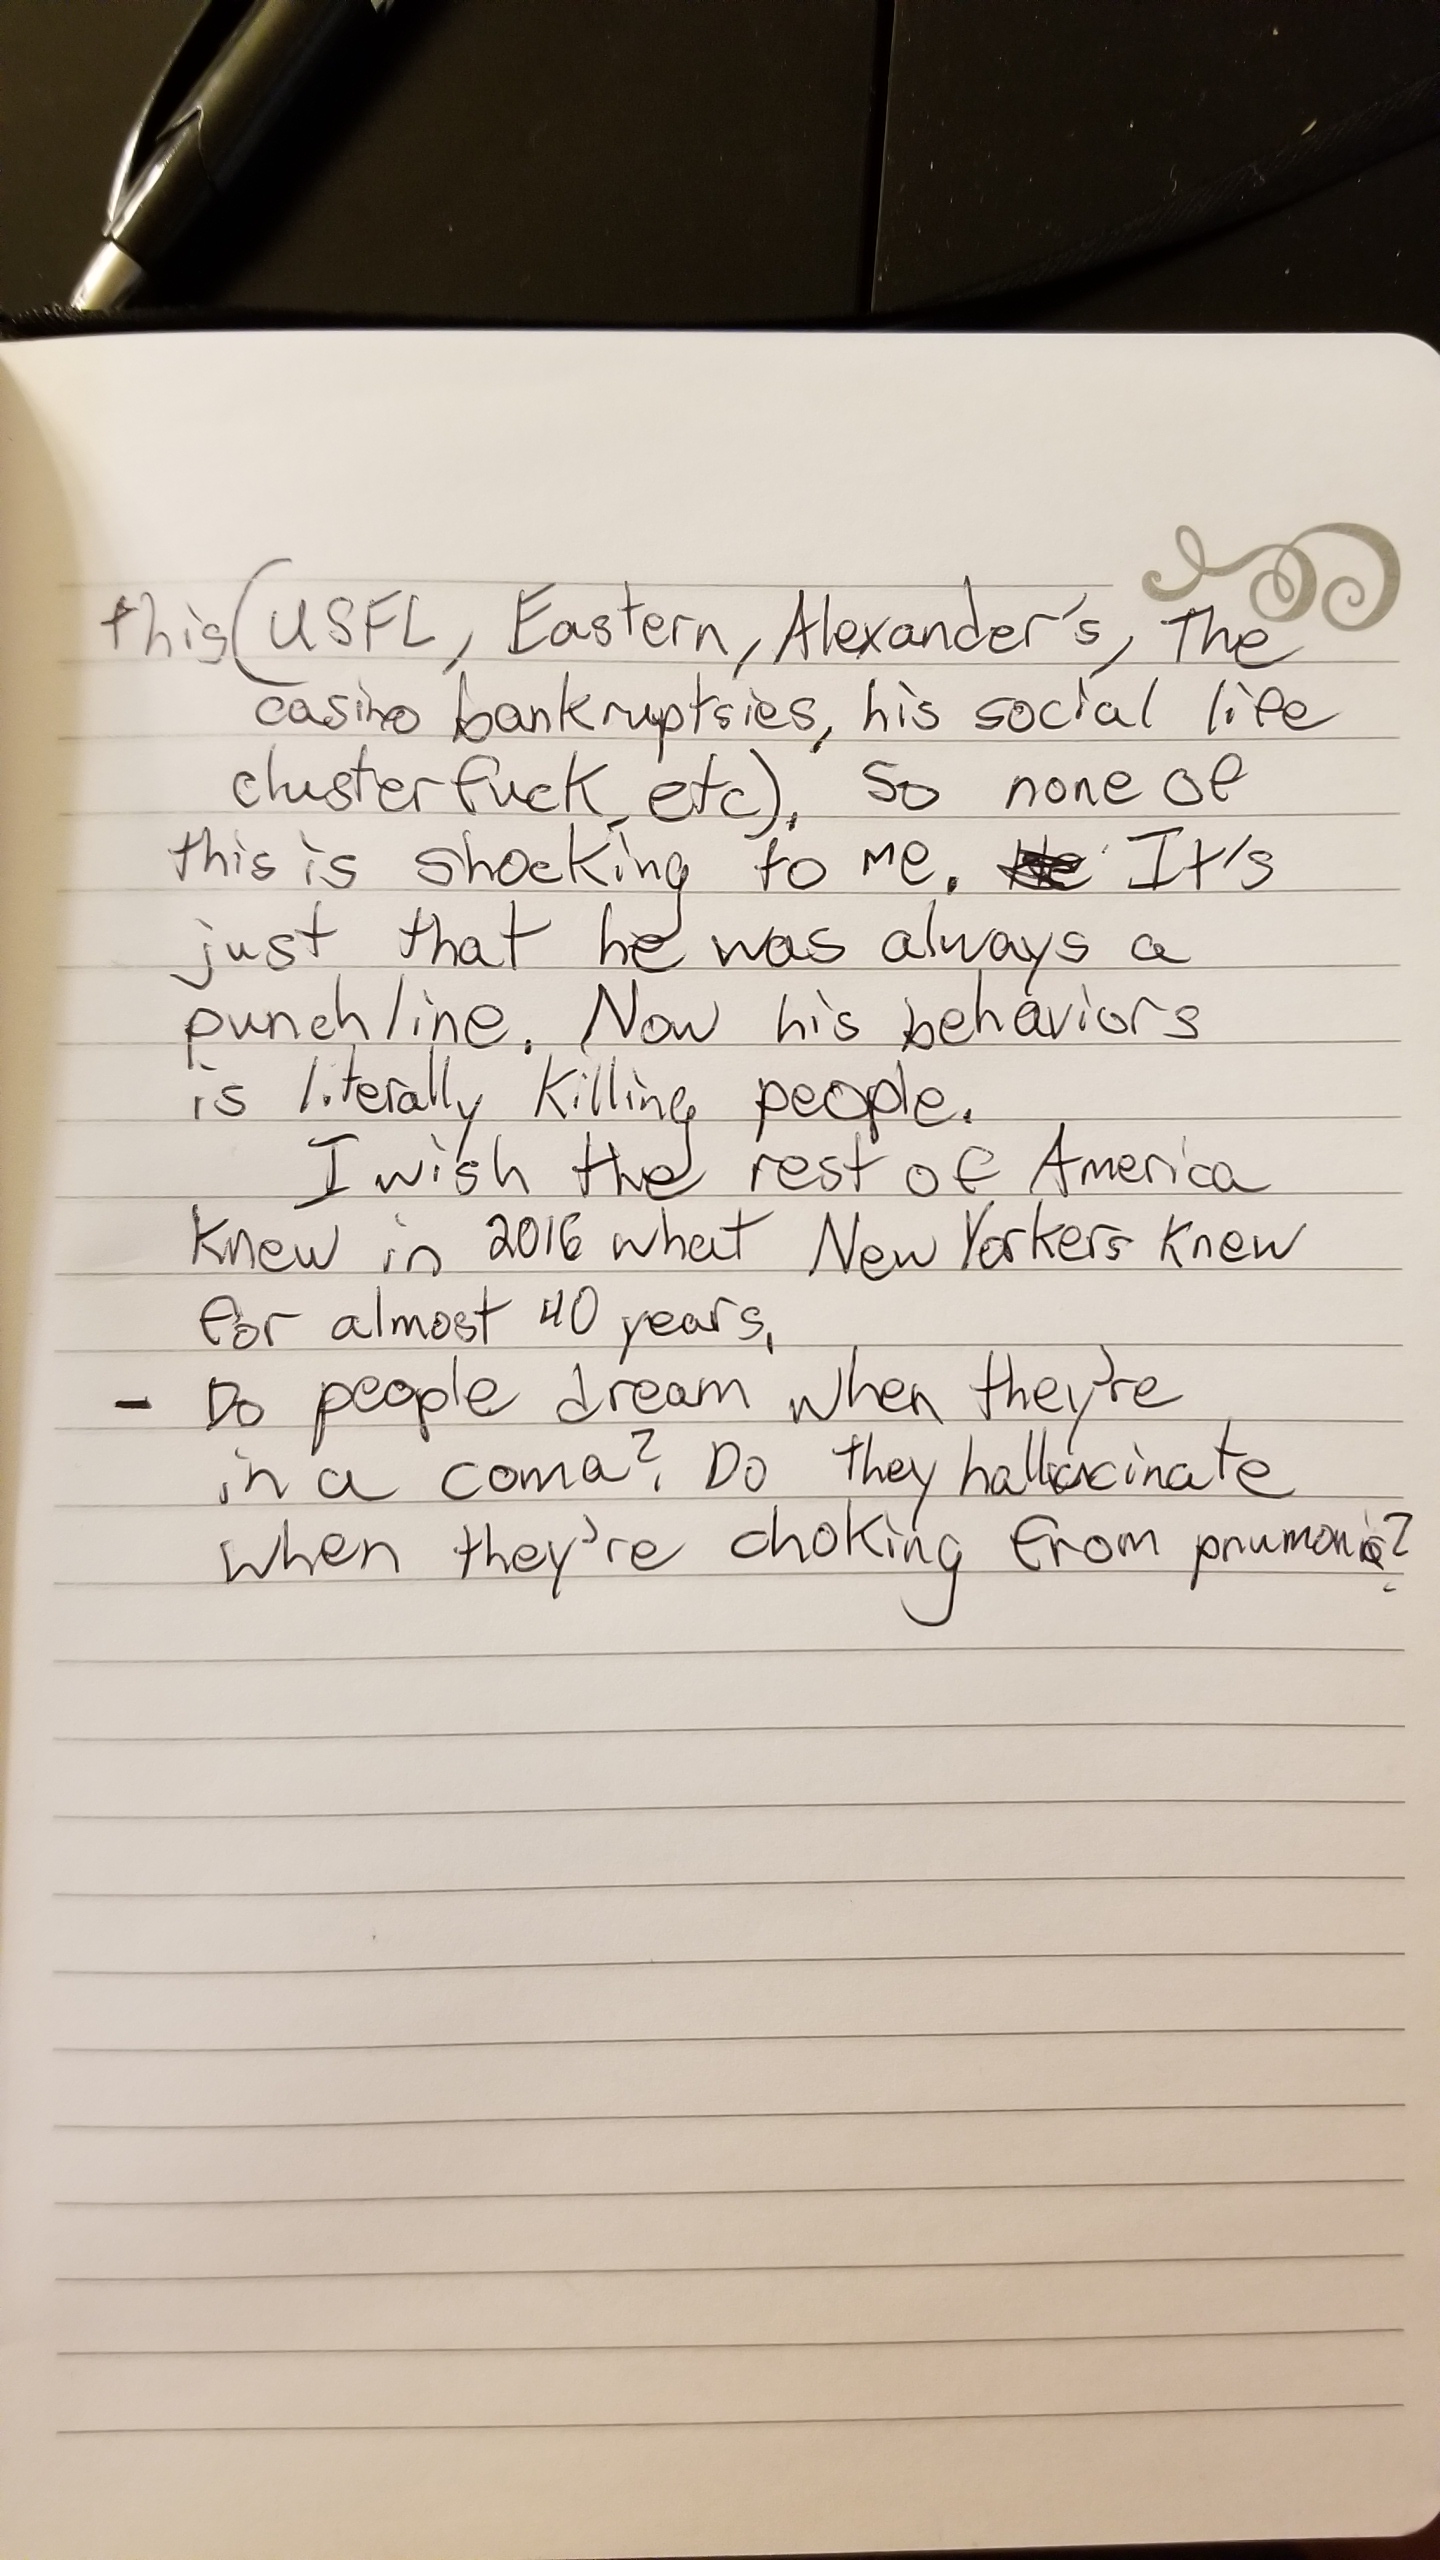 this (USFL, Eastern, Alexander's, The
casino bankruptsies, his social life
clusterfuck, etc). So none of
this is shocking to me. It's
just that he was always a
punchline. Now his behaviors
is literally killing people.
I wish the rest of America
knew in 2016 what New Yorkers knew
for almost 40 years.
- Do people dream when they're
in a coma? Do they hallucinate
when they're choking from pnumonia?